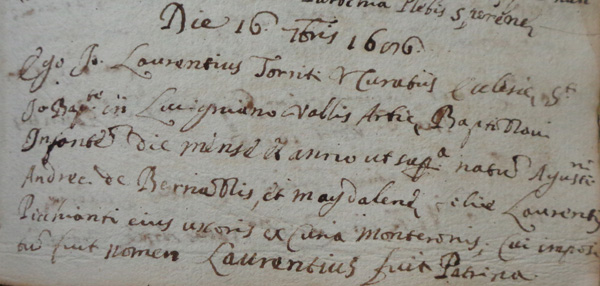 Plebis
Die 16 7bris 1606.
Ego Jo. Laurentius Torriti Curatus Ecclesie St.
Jo Bapte in Luvigniano Vallis Baptizavi
Infante die mense et anno ut supra natu Agusti
Andree de Bernab et magdalene filie Laurenti
Pichianti eius uxoris ex Curia Monteronis, Cui imposi
tu fuit nomen Laurentius fuit Patrina